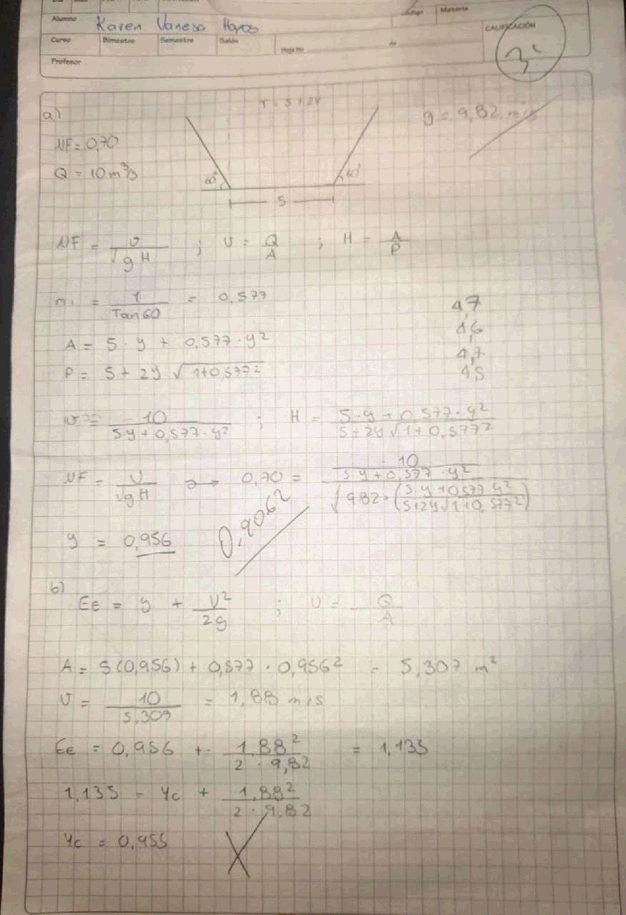 Alumno Karen Vanesa Hoyos
Materia
Curso Bimestre Semestre Salón
Hoja No. de
CALIFICACIÓN
Profesor
3
a)
T = 5 + 2y
g = 9,82 m/s
NF = 0,70
Q = 10 m³/s
60° 60°
5
NF = v / √gH ; U = Q / A ; H = A / P
m1 = 1 / Tan60 = 0,577
A = 5·y + 0,577·y²
P = 5 + 2y √1+0,577²
4,7
4,6
4,7
4,5
v = 10 / 5y + 0,577·y² ; H = 5·y + 0,577·y² / 5+2y√1+0,577²
NF = U / √gH → 0,70 = 10 / 5y+0,577·y² / √9,82·(5y+0,577y² / 5+2y√1+0,577²)
y = 0,956
0,9062
b)
EE = y + V² / 2g ; U = Q / A
A = 5(0,956) + 0,577·0,956² = 5,307 m²
U = 10 / 5,307 = 1,88 m/s
EE = 0,956 + 1,88² / 2·9,82 = 1,135
1,135 = Yc + 1,88² / 2·9,82
Yc = 0,955